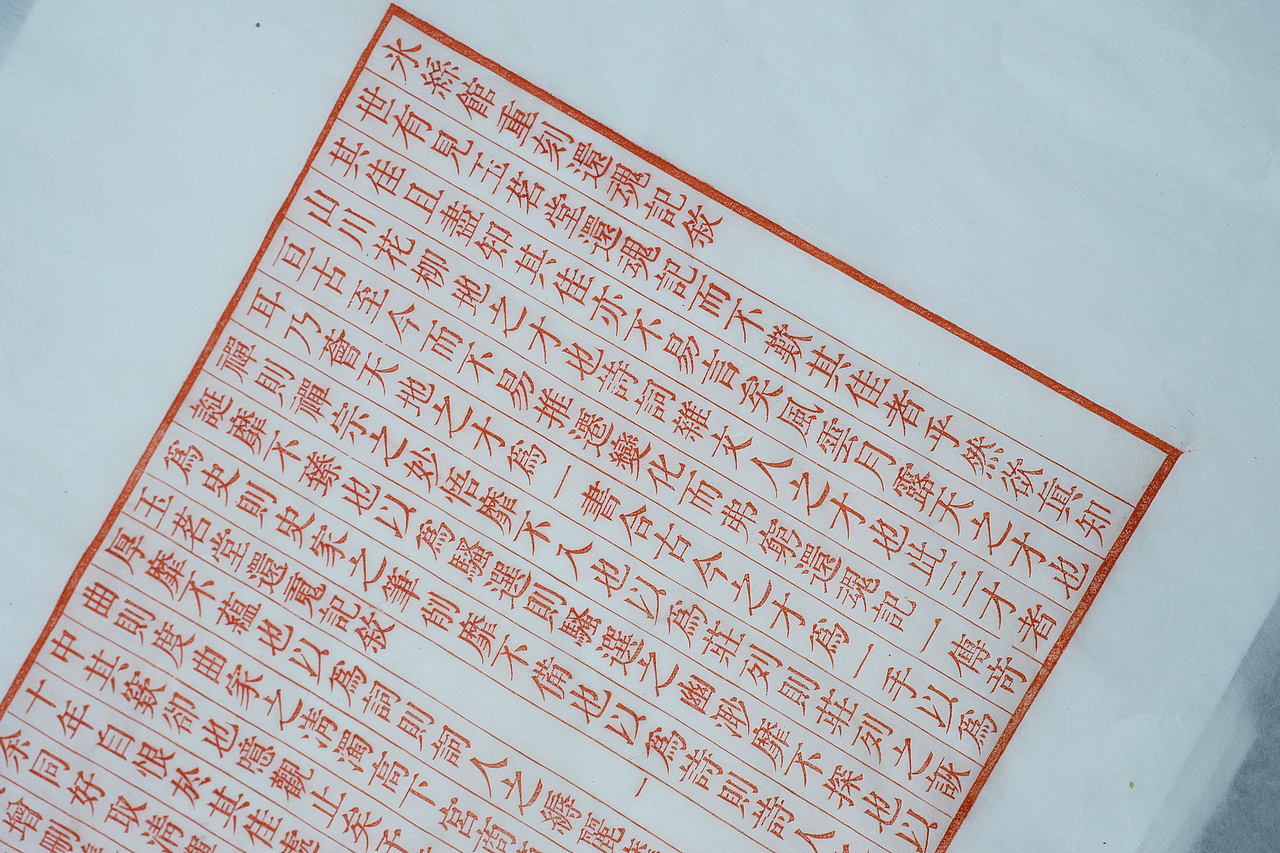 氷絲館重刻還魂記敘
世有見玉茗堂還魂記而不歎其佳者乎然欲真知
其佳且盡知其佳亦不易言矣風雲月露天之才也
山川花柳地之才也詩詞雜文人之才也此三才者
亘古至今而不易推遷變化而弗窮還魂記一傳奇
耳乃薈天地之才爲一書合古今之才爲一手以爲
禪則禪宗之妙悟靡不入也以爲莊列則莊列之詼
誕靡不臻也以爲騷選則騷選之幽眇靡不探也以
爲史則史家之筆削靡不備也以爲詩則詩人
玉茗堂還䰟記敘 一
厚靡不蘊也以爲詞則詞人之縟麗
曲則度曲家之清濁高下宮商
中其窾卻也噫觀止矣予
十年自恨於其佳處
余同好取清暉
增刪